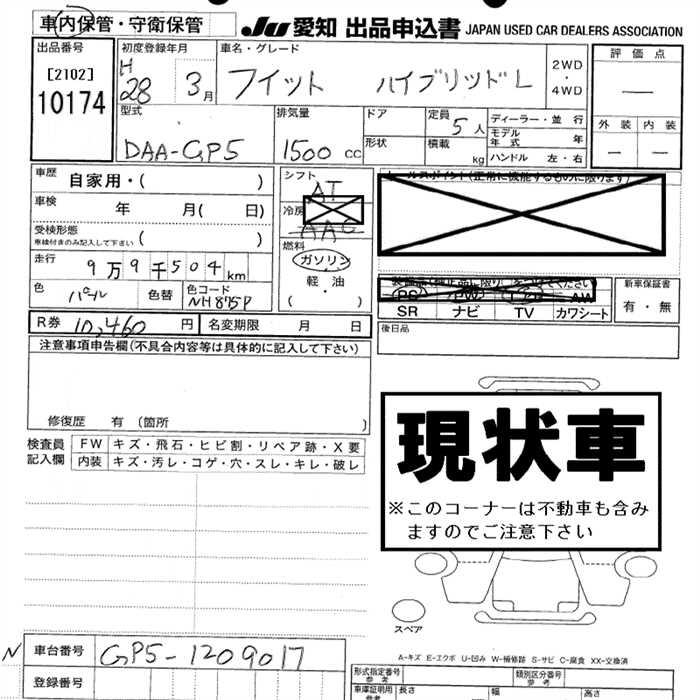 車内保管・守衛保管
JU 愛知 出品申込書 JAPAN USED CAR DEALERS ASSOCIATION
出品番号
[2102]
10174
初度登録年月
H
28 3月
車名・グレード
フィット ハイブリッドL
2WD
・
4WD
評価点
—
外装 内装
— —
型式
DAA-GP5
排気量
1500 cc
ドア
形状
定員
5人
積載
kg
ディーラー・並行
モデル年式 年
ハンドル 左・右
車歴 自家用・( )
車検 年 月( 日)
受検形態
車検付きのみ記入して下さい ( )
走行 9万9千504km
色 パール 色替 色コード NH875P
シフト
AT
冷房
AAC
燃料
ガソリン
軽・油
( )
セールスポイント(正常に機能するものに限ります)
PS PW AW
SR ナビ TV カワシート
新車保証書
有・無
後日品
R券 10,460円 名変期限 月 日
注意事項申告欄(不具合内容等は具体的に記入して下さい)
修復歴 有(箇所 )
検査員記入欄
FW キズ・飛石・ヒビ割・リペア跡・X要
内装 キズ・汚レ・コゲ・穴・スレ・キレ・破レ
現状車
※このコーナーは不動車も含み
ますのでご注意下さい
スペア
A-キズ E-エクボ U-凹み W-補修跡 S-サビ C-腐食 XX-交換済
N 車台番号 GP5-1209017
登録番号
形式指定番号
参考
類別区分番号
参考
車庫証明用
参考
長さ 幅 高さ